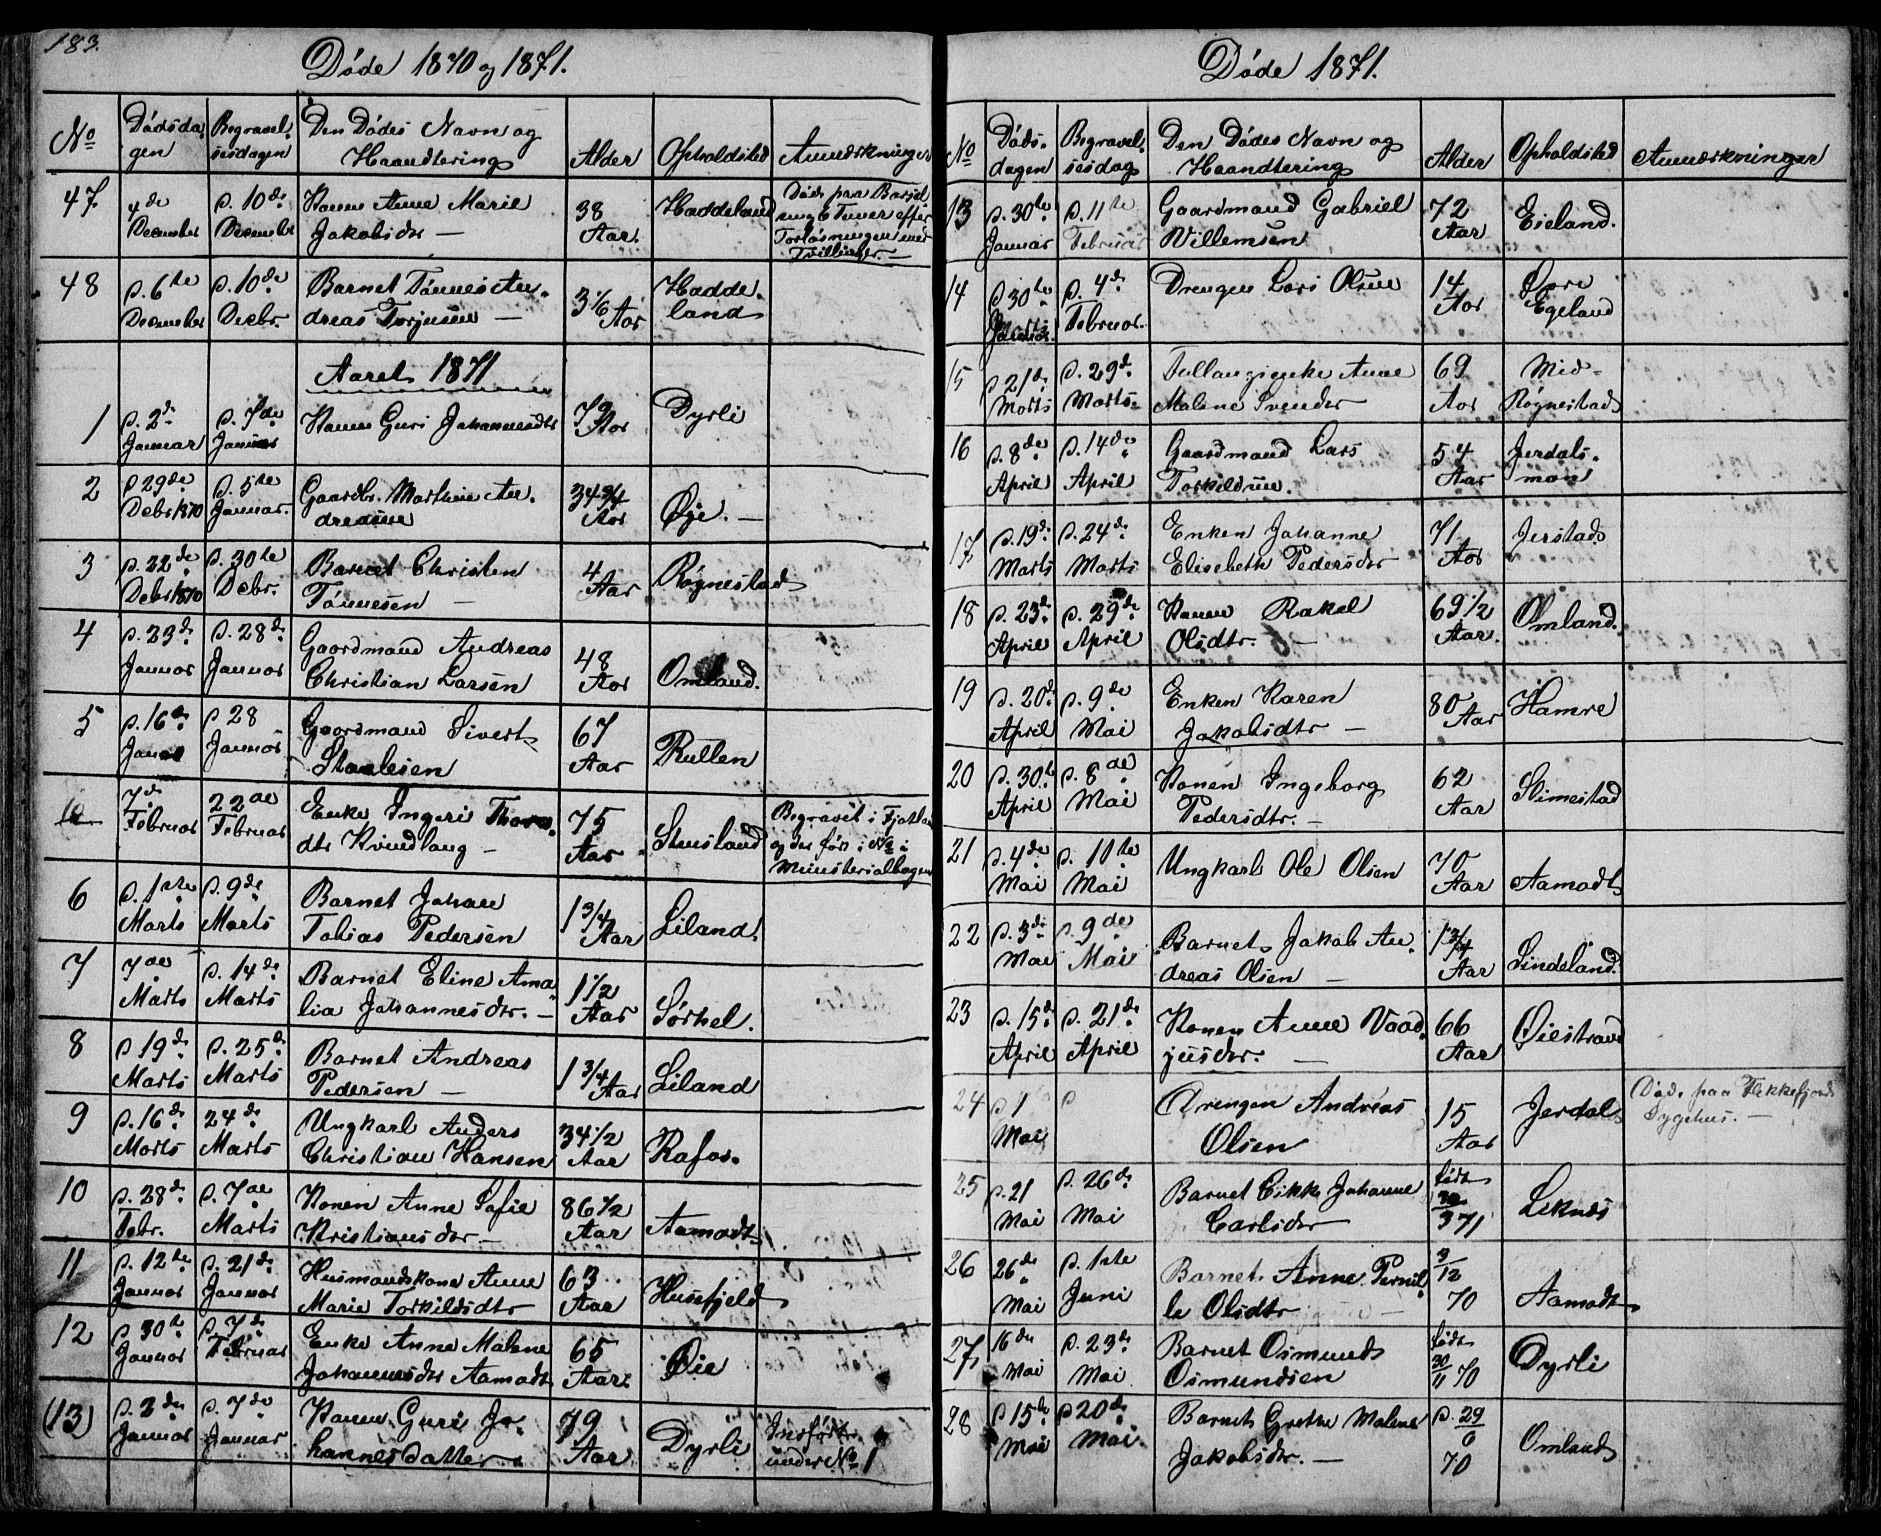 183.
Døde 1870 og 1871.
No Dødsdagen Begravelsesdagen Den Dødes Navn og Haandtering Alder Opholdsted Anmærkninger
47. 4de December d. 10de December Konen Anne Marie Jakobsdtr — 38 Aar. Haddeland Døde paa Barselseng 6 Timer efter Forløsningen med Tvillinger. —
48 d. 6te December d. 10de Decbr. Barnet Tønnes Andreas Torjusen — 3 1/6 Aar Haddeland
Aaret 1871
1 d. 2de Januar d. 7de Januar Konen Guri Johannesdtr 79 Aar Dyrli
2 d 29de Debr 1870 d. 5te Januar. Gaardbr. Mathias Andreasen 34 3/4 Aar Øje. —
3 d. 22de Debr 1870 d. 30te Debr. Barnet Christen Tønnesen — 4 Aar Røgnestad
4 d. 23de Januar d. 28de Januar Gaardmand Andreas Christian Larsen 48 Aar Omland.
5 d. 16de Januar d 28 Januar Gaardmand Sivert Staalesen 67 Aar Rullen
7de Februar 22de Februar Enke Ingeri Thoresdtr Kvindlaug — 75 Aar Stusland Begravet i Fjotland og der ført i No i Ministerialbogen
6 d. 1ste Marts d. 9de Marts Barnet Johan Tobias Pedersen 1 3/4 Aar Liland.
7 7de Marts d. 14de Marts Barnet Eline Amalia Johannesdtr. — 1 1/2 Aar Sørhel.
8 d 19de Marts d. 25de Marts Barnet Andreas Pedersen — 1 3/4 Aar Liland
9 d. 16de Marts 24de Marts Ungkarl Anders Christian Hansen 34 1/2 Aar Rafos.
10 d. 28de Febr. d. 7de Marts Konen Anne Sofie Kristiansdtr — 86 1/2 Aar Aamodt
11 d. 12te Januar d. 21de Januar Husmandskone Anne Marie Torkildsdtr 63 Aar Husefjeld
12 d 30te Januar d. 7de Februar Enke Anne Malene Johannesdtr Aamodt 65 Aar. Øie
(13) d. 2den Januar d. 7de Januar Konen Guri Johannesdatter. 79 Aar Dyrli Indført under No 1
Døde 1871.
No Dødsdagen Begravelsesdag Den Dødes Navn og Haandtering Alder Opholdsted Anmærkninger
13 d. 30te Januar d. 11te Februar Gaardmand Gabriel Villemsen 72 Aar Eieland.
14 d 30te d. 4de Februar. Drengen Lars Olsen 14 Aar Øvre Egeland
15 d 21de Marts d. 29de Marts. Anne Malene Svensdtr 69 Aar Mid-Røgnestad
16 d. 8de April d. 14de April Gaardmand Lars Torkildsen. 54 Aar Jerdalsmon
17 d. 19de Marts d. 24de Marts Enken Johanne Elisebeth Pedersdtr 71 Aar Jerstad
18 d. 23de April d. 29de April Konen Rakel Olsdtr. — 69 1/2 Aar. Omland.
19 d. 20de April d. 9de Mai Enken Karen Jakobsdtr — 80 Aar Hamre
20 d. 30te April d. 8de Mai Konen Ingeborg Pedersdtr. — 62 Aar Slimestad
21 d. 4de Mai d. 10te Mai Ungkarl Ole Olsen 70 Aar Aamodt
22 d. 3de Mai d. 9de Mai Barnet Jakob Andreas Olsen — 1 3/4 Aar Lindeland.
23 d. 15de April d. 21de April Konen Anne Vaadjusdtr. — 66 Aar Øiestrand
24 d 1 Mai d Drengen Andreas Olsen 15 Aar Jerdal Døde paa Flekkefjords Sygehus. —
25 d. 21 Mai d. 26de Mai Barnet Cikke Johanne Carlsdtr født 30/3 71 Leknes
26 26de Mai d. 1ste Juni Barnet Anne Pernille Olsdtr — 3/12 70 Aamodt
27. 16de Mai d. 23de Mai Barnet Osmund Osmundsen født 30/11 70 Dyrli
28 d 15te Mai d 20de Mai. Barnet Grethe Malene Jakobsdtr. — d. 29/6 70 Omland